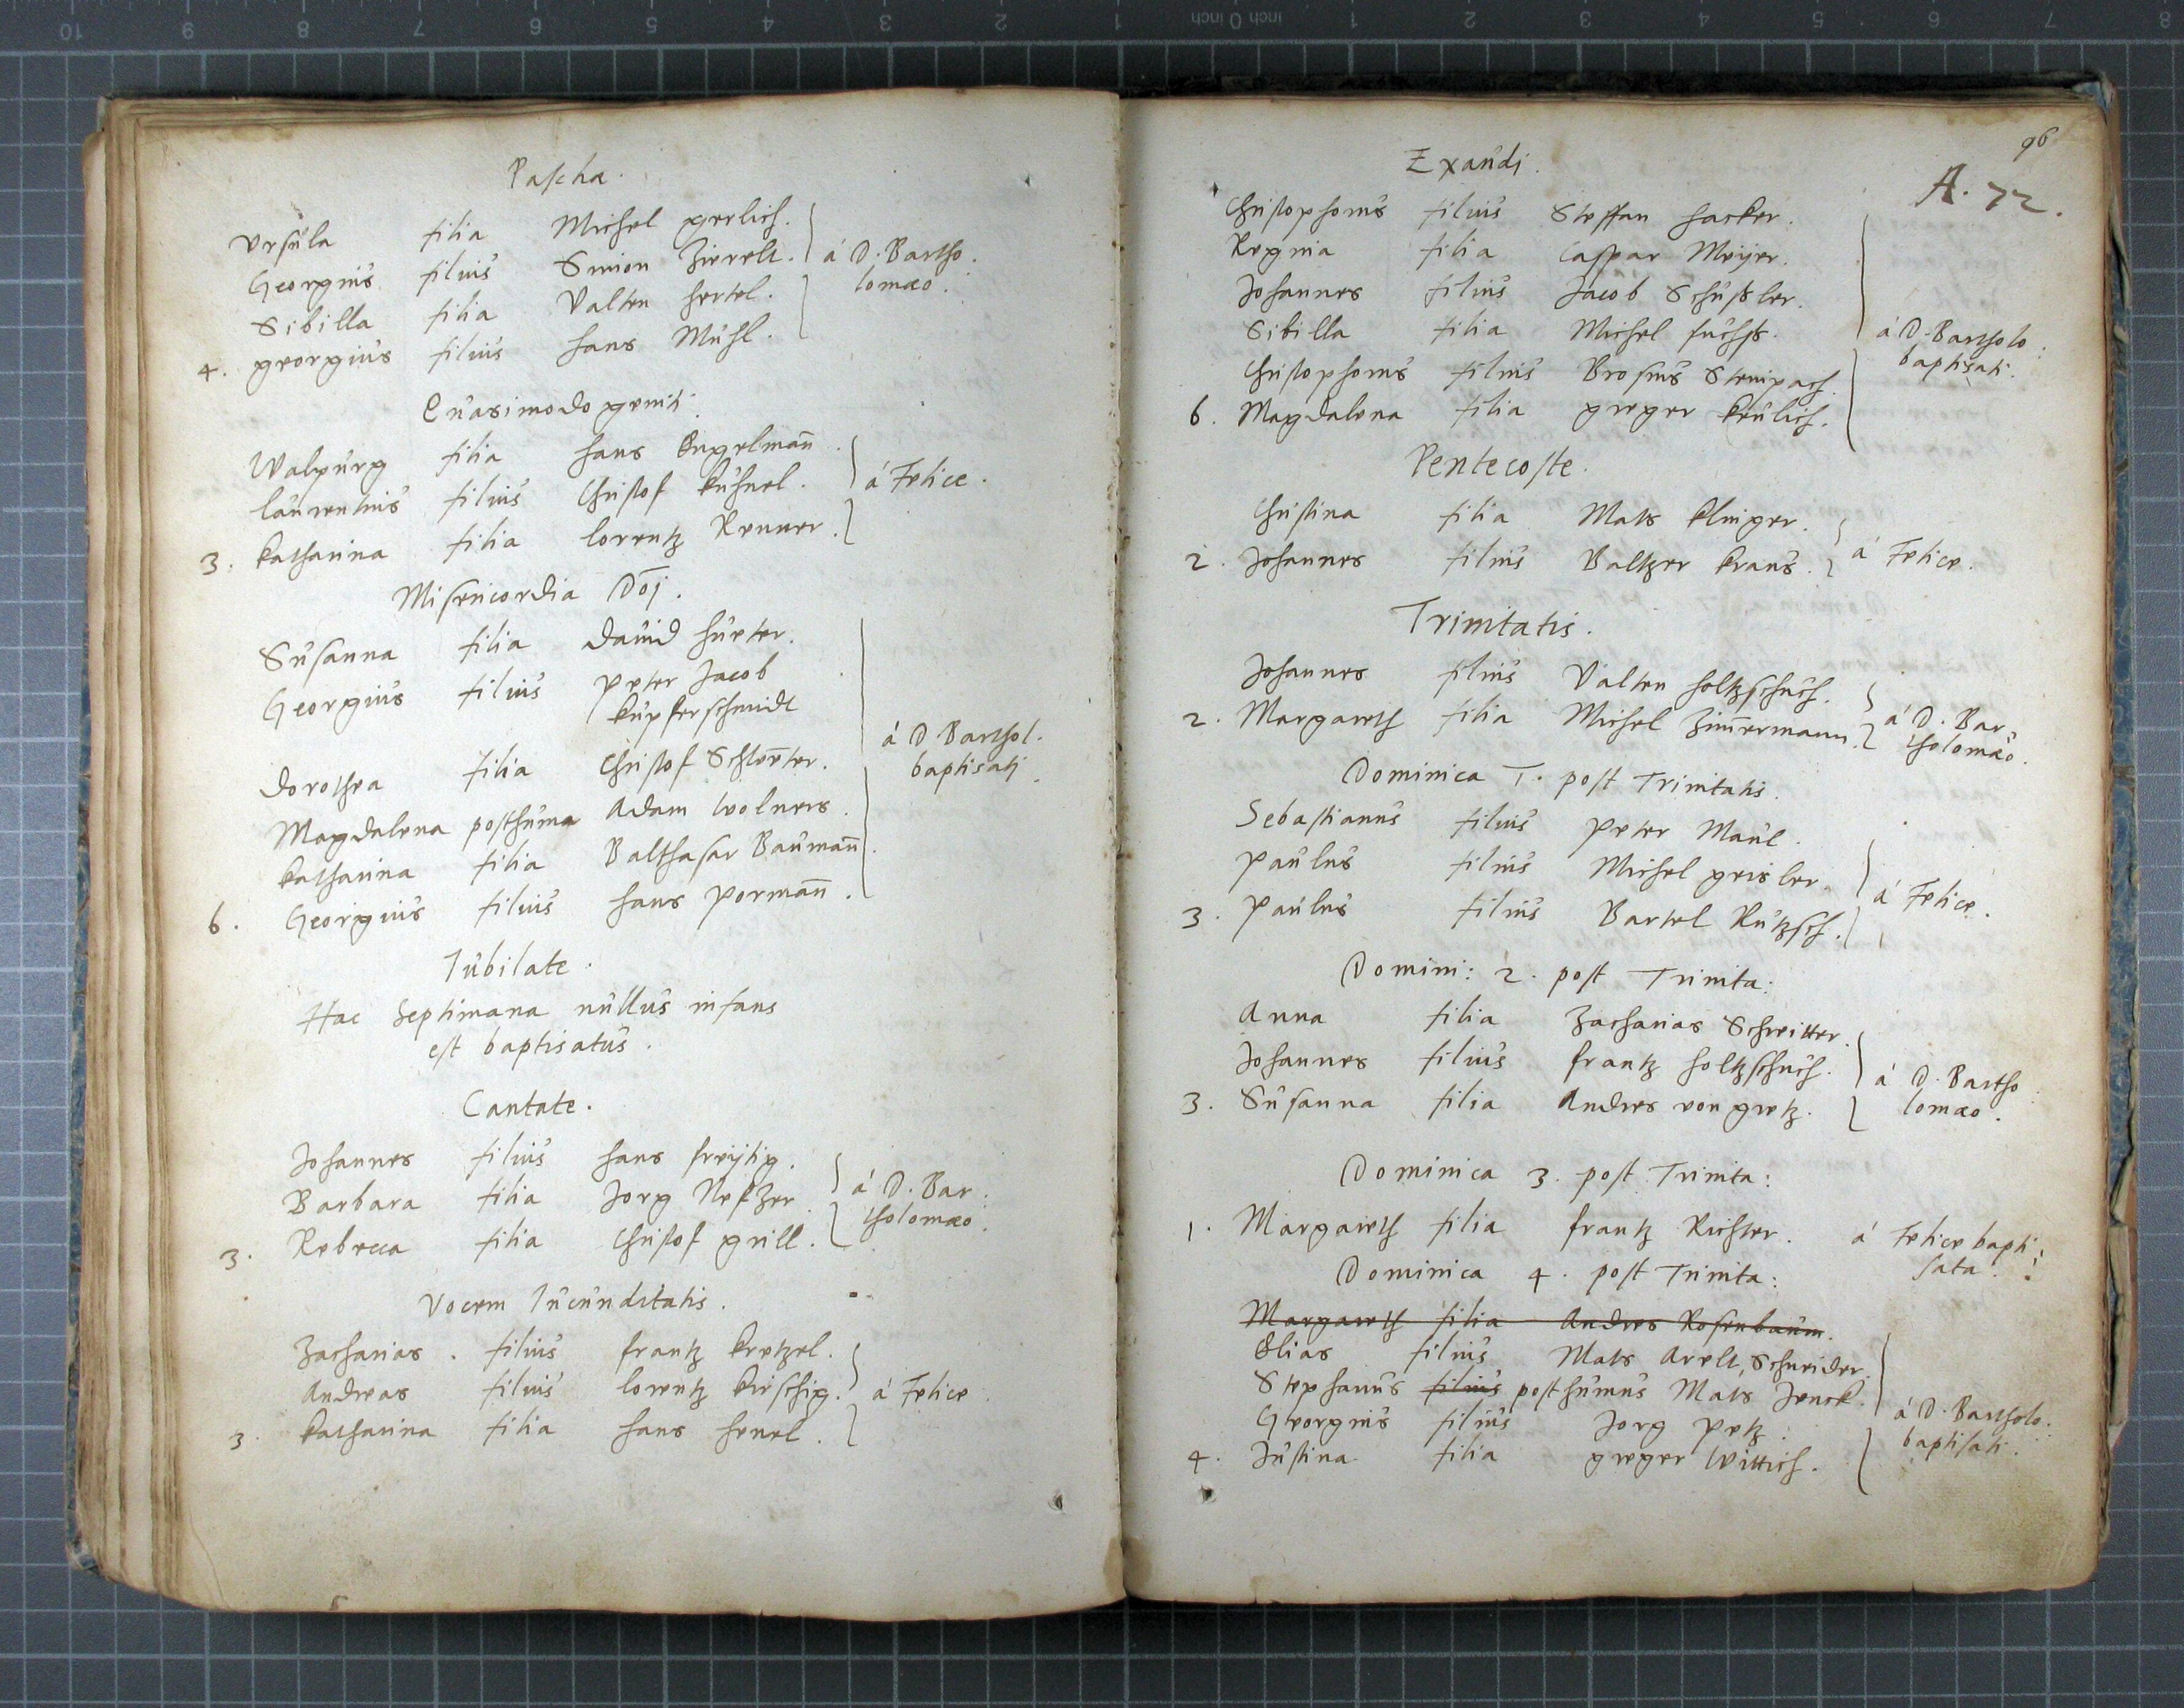 Pascha.
Ursula filia Michel gerlich.
Georgius filius Simon Zierelt. á D. Bartho.
Sibilla filia Valten hertel. lomæo.
4. georgius filius hans Mühl.
Quasimodogeniti.
Walpurg filia hans Engelman̄
laurentius filius Christof kuhnel. á Felice.
3. katharina filia lorentz Renner.
Misericordia Dōj.
Susanna filia David hurter.
Georgius filius Peter Jacob
kupferschmidt
Dorothea filia Christof á D. Barthol.
baptisatj.
Magdalena posthuma Adam wolners.
katharina filia Balthasar Bauman̄.
6. Georgius filius hans porman̄.
Iubilate.
Hac septimana nullus infans
est baptisatus.
Cantate.
Johannes filius hans freÿtig.
Barbara filia Jorg Nefzer á D. Bar:
Rebecca filia Christof grill. tholomæo.
3.
Vocem Iucunditatis.
Zacharias. filius frantz kretzel.
Andreas filius lorentz kirschig. á Felice.
3. katharina filia hans henel.
96
A. 72.
Exaudi.
Christophorus filius Steffan hacker.
Regina filia Caspar Meÿer.
Johannes filius Jacob Schüssler.
Sibilla filia Michel fuchss. á D. Bartholo:
baptisati.
Christophorus filius Brosius Steinpach.
6. Magdalena filia greger keulich.
Pentecoste.
Christina filia Mats klinger.
2. Johannes filius Baltzer kraus. á Felice.
Trinitatis.
Johannes filius Valten holtzschuch.
2. Margareth filia Michel Zim̄ermann. á D. Bar
tholomæo.
Dominica 1. post Trinitatis.
Sebastianus filius Peter Maul.
Paulus filius Michel geisler. á Felice.
3. Paulus filius Bartel Kützsch.
Domini: 2. post Trinita:
Anna filia Zacharias Schreitter.
Johannes filius frantz holtzschuch. á D. Bartho
3. Susanna filia Andres von gretz. lomæo.
Dominica 3. post Trinita:
1. Margareth filia frantz Richter. á Felice bapti
sata.
Dominica 4. post Trinita:
Margareth filia Andres Rosenbaum.
Elias filius Mats Arelt, Schneider.
Stephanus filius posthumus Mats Jenck.
Georgius filius Jorg Petz. á D. Bartholo:
4. Justina filia greger Wittich. baptisati.